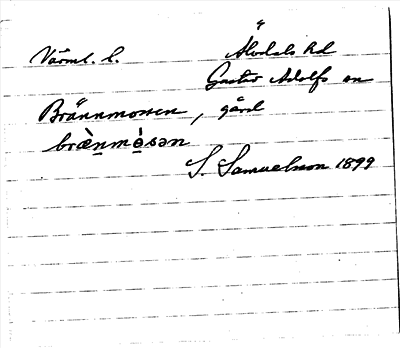 Värml. l. Älvdals hd
Gustav Adolfs sn
Brännmossen, gård
bræ̀n̠mò̠sən
S. Samuelsson 1899